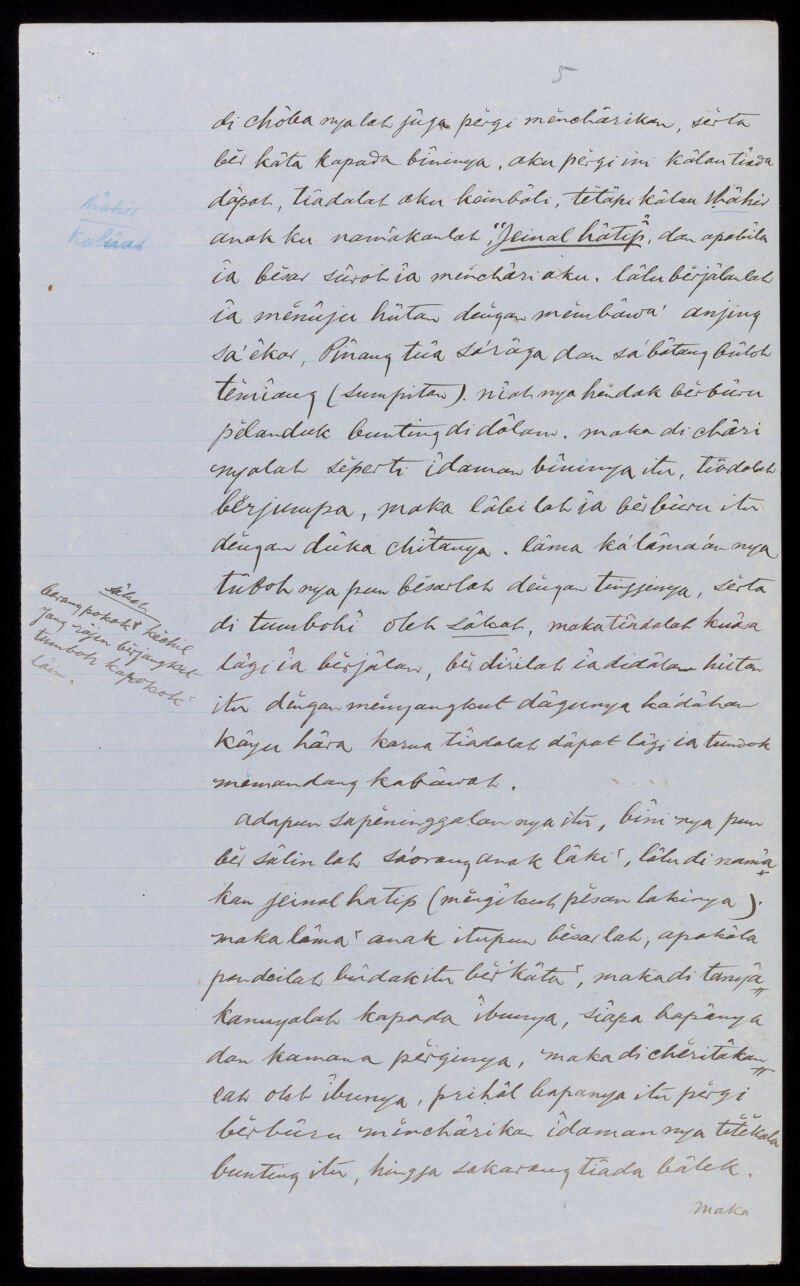 5
di chôba nyalah jûga pĕrgi mĕnchârikan, sĕrta
bĕr kâta kapada bîninya, aku pĕrgi ini kâlau tîada
dâpat, tîadalah aku kĕmbâli, tĕtâpi kâlau thâhir
anak ku namâkanlah, "Jeinal hâtip", dan apabîla
îa bĕsar sûroh îa mĕnchâri aku. lâlu bĕrjâlanlah
îa mĕnûju hûtan dĕngan mĕmbâwa' anjing
sa'êkor, Pînang tûa sa'râga dan sa'bâtang bûloh
tĕmîang (sumpitan). nîat nya hĕndak bĕrbûru
pĕlanduk bunting di dâlam. maka di châri
nyalah sĕperti îdaman bîninya itu, tîadalah
bĕrjumpa, maka lâbi lah îa bĕrbûru itu
dĕngan dûka chîtanya. lâma ka'lâmâan nya
tûboh nya pun bĕsarlah dĕngan tingginya, sĕrta
di tumbohî oleh sâkat, maka tîadalah kuâsa
lâgi îa bĕrjâlan, bĕr dîrilah îa didâlam hûtan
itu dĕngan mĕnyangkut dâgunya ka'dâhan
kâyu hâra karna tîadalah dâpat lâgi ia tundok
memandang kabâwah.
adapun sapĕninggalan nya itu, bîni nya pun
bĕr sâlin lah sa'orang anak lâki², lâlu di namâ
kan jeinal hatip (mĕngîkut pĕsan lakinya).
maka lâma² anak itupun bĕsarlah, apakâla
pandailah bûdak itu bĕr'kâta², maka di tanyâ
kannyalah kapada îbunya, sîapa bapânya
dan kamana pĕrginya, maka di chĕritâkan
lah oleh îbunya, prihâl bapanya itu pĕrgi
bĕrbûru mĕnchârikan îdaman nya tĕtĕkala
bunting itu, hingga sakarang tîada bâlek.
maka
thâhir
Kalûar
sâkat
barang pokok² kĕchil
yang râjin bĕrjangkit
tumboh kapokok²
lâin.